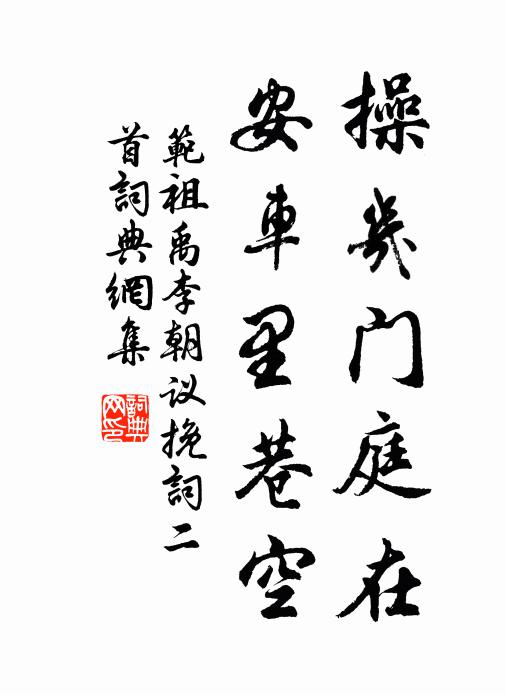 操幾門庭在
安車里巷空
範祖禹李朝议挽詞二
首詞典網集
詞典网印